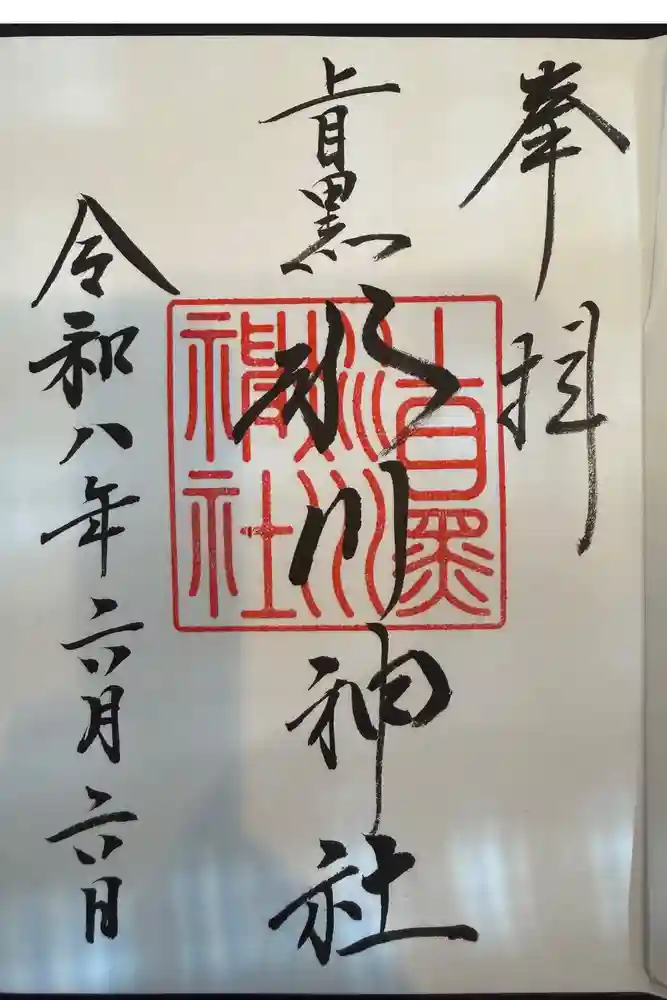 奉拝
上目黒氷川神社
上目黒
氷川
神社
令和八年六月六日